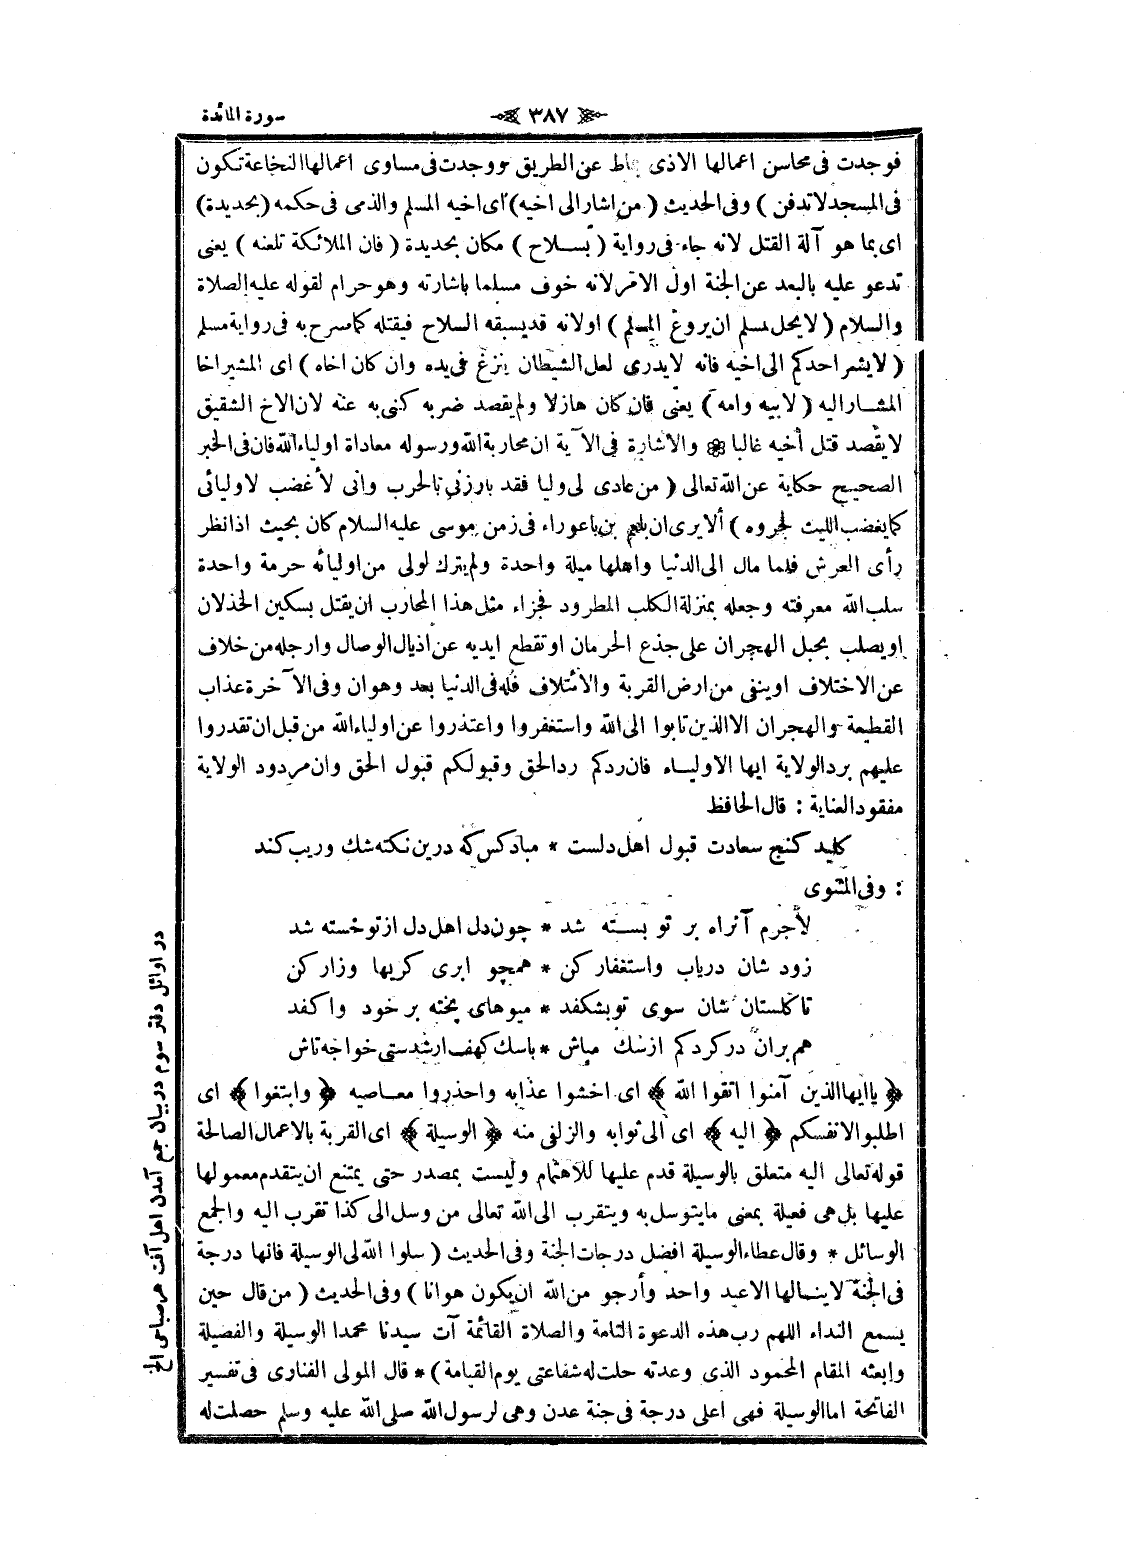 سورة المائدة
٣٨٧
فوجدت فى محاسن اعمالها الاذى يماط عن الطريق ووجدت فى مساوى اعمالها النخاعة تكون
فى المسجد لاتدفن ) وفى الحديث ( من اشار الى اخيه ) اى اخيه المسلم والذمى فى حكمه ( بحديدة )
اى بما هو آلة القتل لانه جاء فى رواية ( بسلاح ) مكان بحديدة ( فان الملائكة تلعنه ) يعنى
تدعو عليه بالبعد عن الجنة اول الامر لانه خوف مسلما باشارته وهو حرام لقوله عليه الصلاة
والسلام ( لايحل لمسلم ان يروع المسلم ) اولانه قديسبقه السلاح فيقتله كما صرح به فى رواية مسلم
( لايشر احدكم الى اخيه فانه لايدرى لعل الشيطان ينزغ فى يده وان كان اخاه ) اى المشير اخا
المشار اليه ( لابيه وامه ) يعنى فان كان هازلا ولم يقصد ضربه كنى به عنه لان الاخ الشقيق
لايقصد قتل أخيه غالبا ۞ والاشارة فى الآية ان محاربة الله ورسوله معاداة اولياء الله فان فى الخبر
الصحيح حكاية عن الله تعالى ( من عادى لى وليا فقد بارزنى بالحرب وانى لأغضب لاوليائى
كما يغضب الليث لجروه ) ألايرى ان بلعم بن باعوراء فى زمن موسى عليه السلام كان بحيث اذا نظر
رأى العرش فلما مال الى الدنيا واهلها ميلة واحدة ولم يترك لولى من اوليائه حرمة واحدة
سلب الله معرفته وجعله بمنزلة الكلب المطرود فجزاء مثل هذا المحارب ان يقتل بسكين الخذلان
اويصلب بحبل الهجران على جذع الحرمان اوتقطع ايديه عن اذيال الوصال وارجله من خلاف
عن الاختلاف اوينفى من ارض القربة والائتلاف فله فى الدنيا بعد وهوان وفى الآخرة عذاب
القطيعة والهجران الا الذين تابوا الى الله واستغفروا واعتذروا عن اولياء الله من قبل ان تقدروا
عليهم برد الولاية ايها الاولياء فان ردكم رد الحق وقبولكم قبول الحق وان مردود الولاية
مفقود العناية : قال الحافظ
كليد كنج سعادت قبول اهل دلست * مبادكس كه درين نكته شك وريب كند
: وفى المثنوى
لاجرم آنراه بر تو بسته شد * چون دل اهل دل ازتو خسته شد
زود شان درياب واستغفار كن * همچو ابرى كريها وزار كن
تا كلستان شان سوى توبشكفد * ميوهاى پخته بر خود واكفد
هم بران در كرد كم ازسك مباش * باسك كهف ارشدستى خواجه تاش
﴿ ياايها الذين آمنوا اتقوا الله ﴾ اى اخشوا عذابه واحذروا معاصيه ﴿ وابتغوا ﴾ اى
اطلبوا لانفسكم ﴿ اليه ﴾ اى الى ثوابه والزلفى منه ﴿ الوسيلة ﴾ اى القربة بالاعمال الصالحة
قوله تعالى اليه متعلق بالوسيلة قدم عليها للاهتمام وليست بمصدر حتى يمتنع ان يتقدم معمولها
عليها بل هى فعيلة بمعنى مايتوسل به ويتقرب الى الله تعالى من وسل الى كذا تقرب اليه والجمع
الوسائل * وقال عطاء الوسيلة افضل درجات الجنة وفى الحديث ( سلوا الله لى الوسيلة فانها درجة
فى الجنة لاينالها الاعبد واحد وأرجو من الله ان يكون هوانا ) وفى الحديث ( من قال حين
يسمع النداء اللهم رب هذه الدعوة التامة والصلاة القائمة آت سيدنا محمدا الوسيلة والفضيلة
وابعثه المقام المحمود الذى وعدته حلت له شفاعتى يوم القيامة ) * قال المولى الفنارى فى تفسير
الفاتحة اما الوسيلة فهى اعلى درجة فى جنة عدن وهى لرسول الله صلى الله عليه وسلم حصلت له
در اوائل دفتر سوم دربيان جمع آمدن اهل آفت هر صباحى الخ